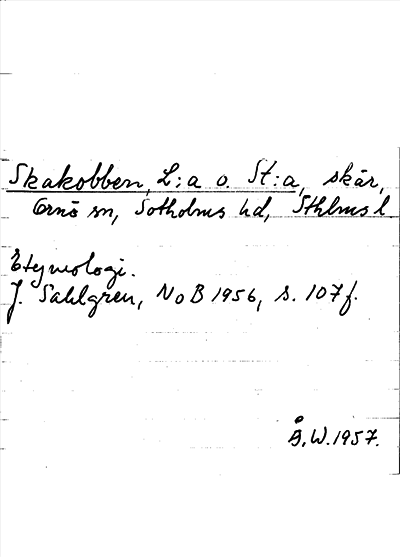 Skakobben, L:a o. St:a, skär,
Ornö sn, Sotholms hd, Sthlms l.
Etymologi.
J. Sahlgren, NoB 1956, s. 107f.
Å.W. 1957.